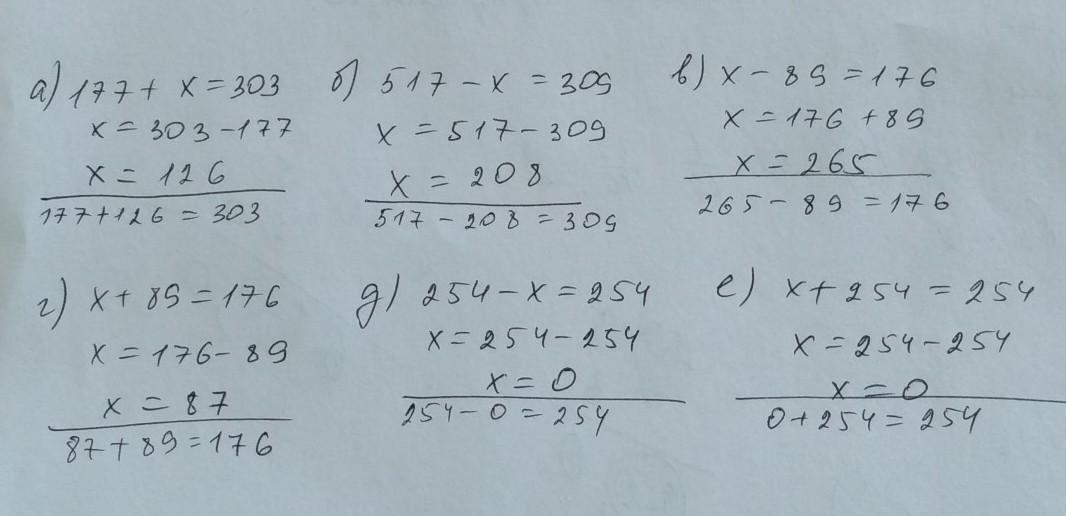 а) 177 + x = 303
x = 303 - 177
x = 126
177 + 126 = 303
б) 517 - x = 309
x = 517 - 309
x = 208
517 - 208 = 309
в) x - 89 = 176
x = 176 + 89
x = 265
265 - 89 = 176
г) x + 89 = 176
x = 176 - 89
x = 87
87 + 89 = 176
д) 254 - x = 254
x = 254 - 254
x = 0
254 - 0 = 254
е) x + 254 = 254
x = 254 - 254
x = 0
0 + 254 = 254